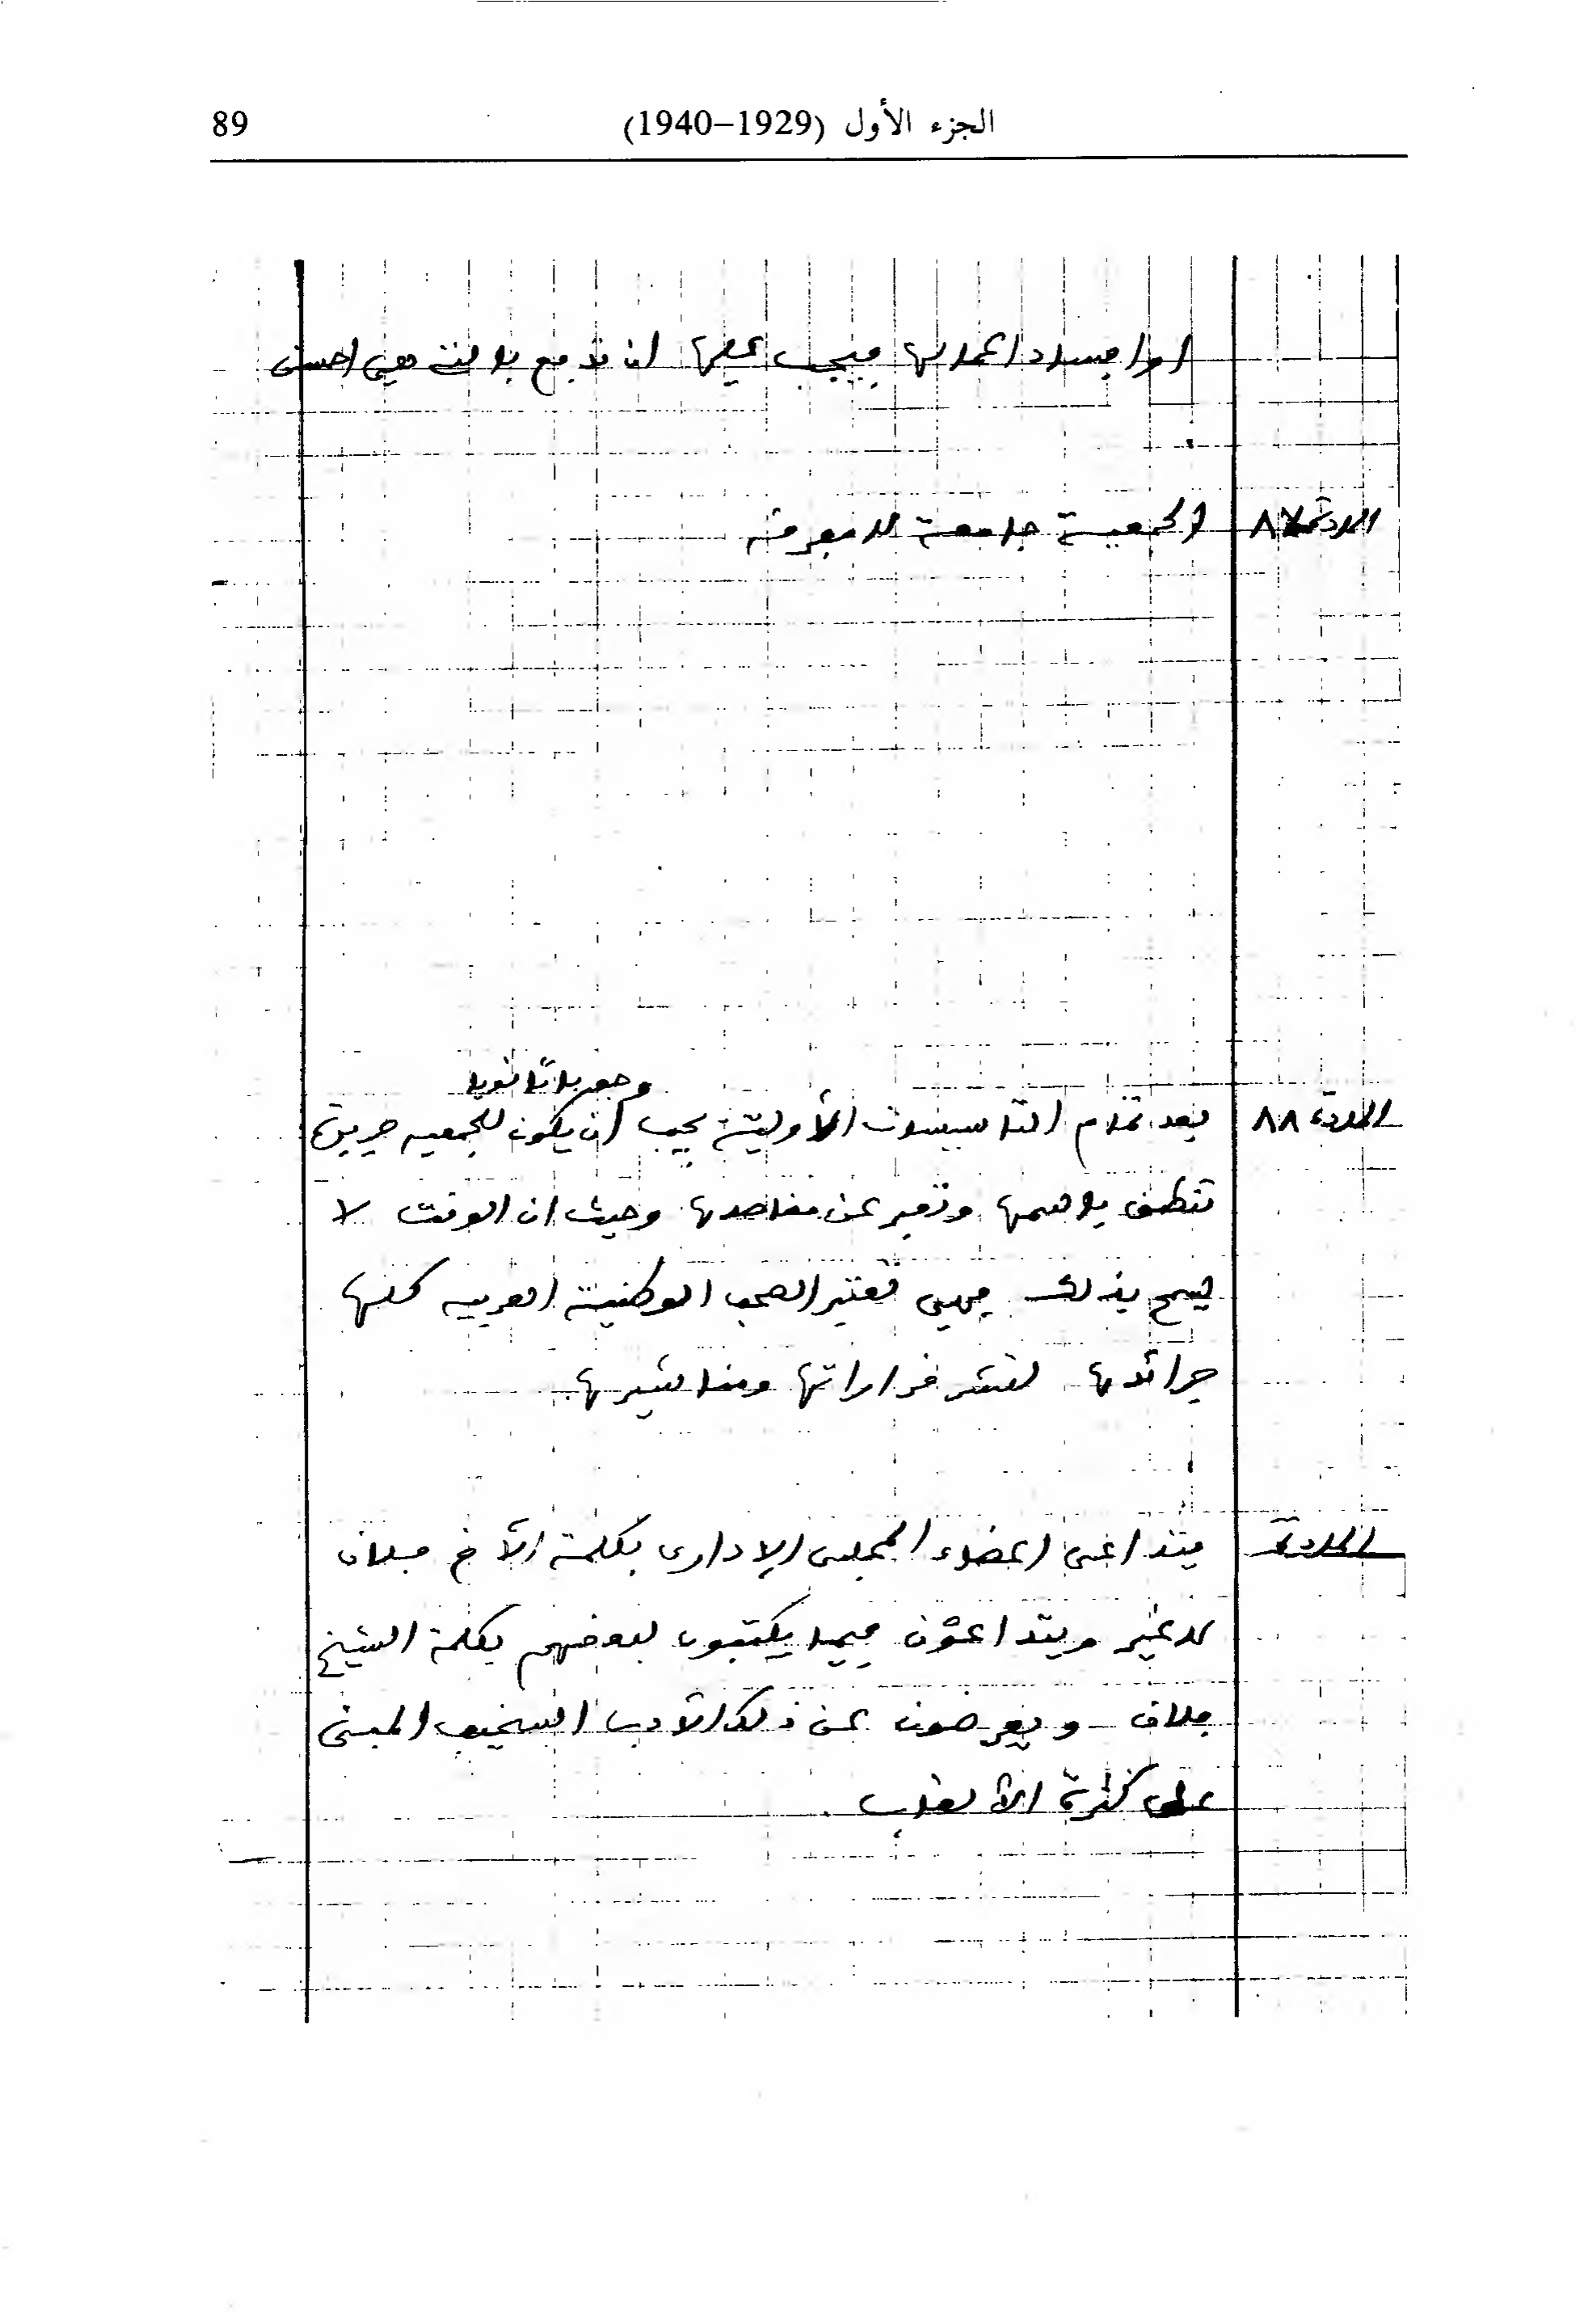 89
الجزء الأول (1929–1940)
اوا فساد اعمالها فيجب عليها ان تدفع بالتي هي احسن
المادة ٨٧ الجمعية جامعة لا مفرقة
وجعرباتا نويا
المادة ٨٨ بعد تمام التأسيسات الأولية يجب أن يكون للجمعية جريدة
تنطق باسمها وتعبر عن مقاصدها وحيث ان الوقت لا
يسمح بذلك فهي تعتبر الصحف الوطنية العربية كلها
جرائدها لنشر قراراتها ومناشيرها.
المادة يتداعى اعضاء المجلس الإدارى بكلمة الأخ فلان
لا غير ويتداعون فيما يكتبون لبعضهم بكلمة الشيخ
فلان ويعرضون عن ذلك الأدب السخيف المبنى
على كثرة الألقاب.